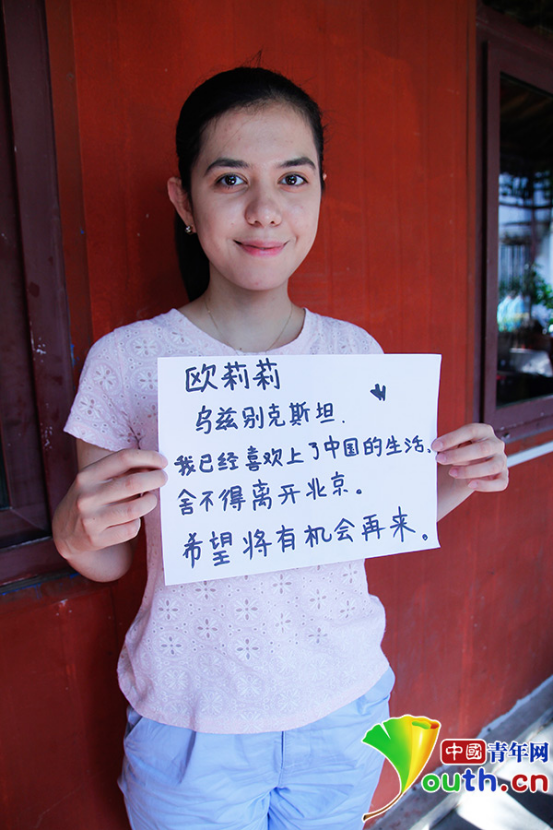 欧莉莉
乌兹别克斯坦.
我已经喜欢上了中国的生活,
舍不得离开北京。
希望将有机会再来。
中國青年网
Youth.cn